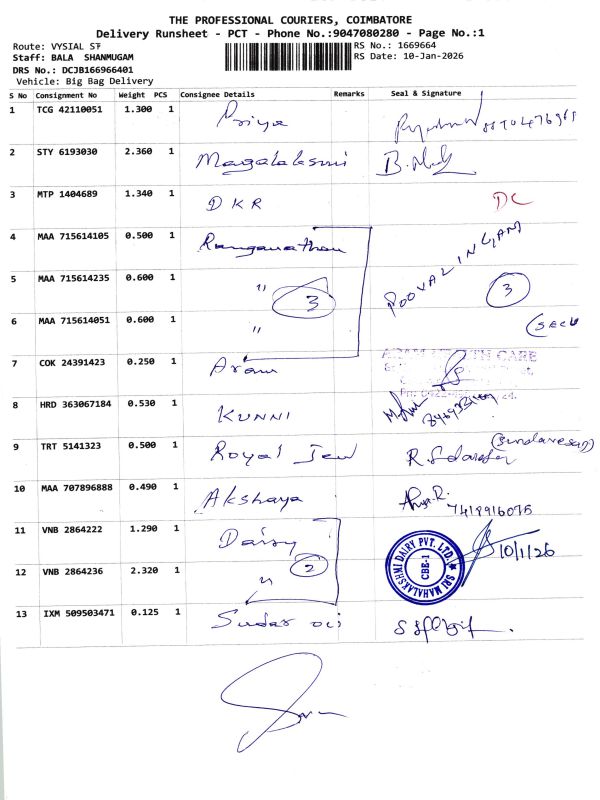 THE PROFESSIONAL COURIERS, COIMBATORE
Delivery Runsheet - PCT - Phone No.:9047080280 - Page No.:1
Route: VYSIAL ST
Staff: BALA SHANMUGAM
DRS No.: DCJB166966401
Vehicle: Big Bag Delivery
RS No.: 1669664
RS Date: 10-Jan-2026
S No Consignment No Weight PCS Consignee Details Remarks Seal & Signature
1 TCG 42110051 1.300 1 Priya
2 STY 6193030 2.360 1 Magalakshmi
3 MTP 1404689 1.340 1 DKR DC
4 MAA 715614105 0.500 1 Ranganathan
5 MAA 715614235 0.600 1 " 3 POOVALINGAM 3
6 MAA 715614051 0.600 1 "
7 COK 24391423 0.250 1 Aram CARE
8 HRD 363067184 0.530 1 KUNNI
9 TRT 5141323 0.500 1 Royal Jew
10 MAA 707896888 0.490 1 Akshaya 7418916075
11 VNB 2864222 1.290 1 Dairy 10/1/26
SRI MAHALAKSHMI DAIRY PVT. LTD. CBE-1
12 VNB 2864236 2.320 1 " 2
13 IXM 509503471 0.125 1 Sudar